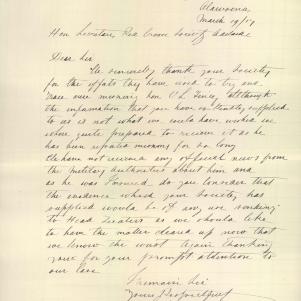 Alawoona
March 19/17
Hon Secretary Red Cross Society Adelaide
Dear Sir
We sincerely thank your Society
for the efforts they have used to try and
trace our missing Son V L Pence, although
the information that you have so kindly supplied
to us is not what we could have wished we
where quite prepared to receive it as he
has been reported missing for so long
We have not received any official news from
the Military Authorities about him and
as he was Insured do you consider that
the evidence which your Society has
supplied would be of any use sending
to Head Quarters as we should like
to have the matter cleared up now that
we know the worst Again thanking
you for your prompt attention to
our case
I remain Sir
Yours Respectfully